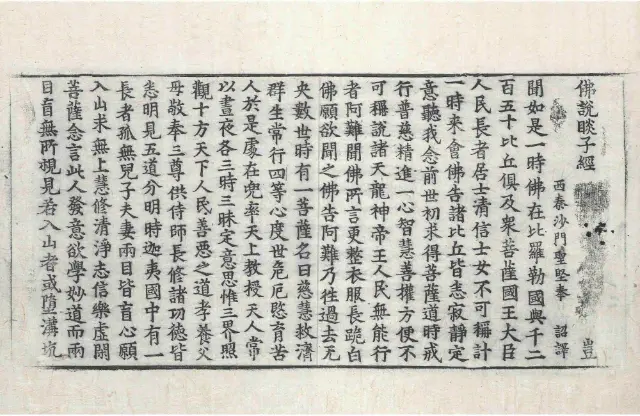 佛說睒子經
西秦沙門聖堅奉 詔譯 豈
聞如是一時佛在比羅勒國與千二
百五十比丘俱及衆菩薩國王大臣
人民長者居士清信士女不可稱計
一時来會佛告諸比丘皆悉寂靜定
意聽我念前世初求得菩薩道時戒
行普慈精進一心智慧善權方便不
可稱說諸天龍神帝王人民無能行
者阿難聞佛所言更整衣服長跪白
佛願欲聞之佛告阿難乃往過去无
央數世時有一菩薩名曰慈慧救濟
群生常行四等心度世危厄慜育苦
人於是處在兜率天上教授天人常
以晝夜各三時三昧定意思惟三界照
觀十方天下人民善惡之道孝養父
母敬奉三尊供侍師長修諸功德皆
悉明見五道分明時迦夷國中有一
長者孤無兒子夫妻兩目皆盲心願
入山求無上慧修清淨志信樂虛閑
菩薩念言此人發意欲學妙道而兩
目盲無所覩見若入山者或墮溝坑